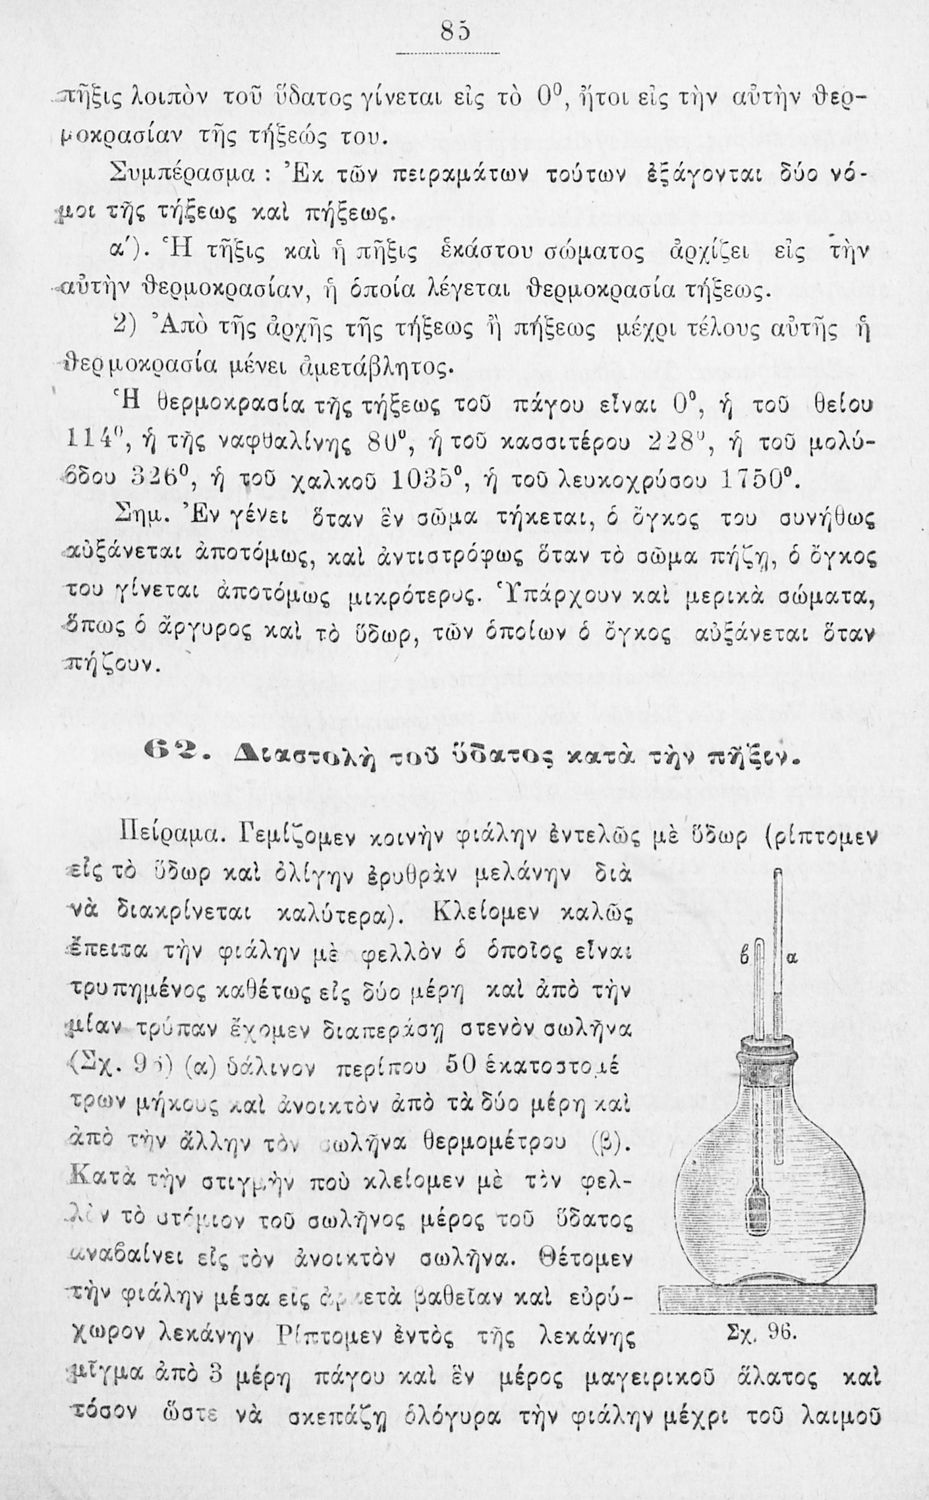 85
πῆξις λοιπὸν τοῦ ὕδατος γίνεται εἰς τὸ 0⁰, ἤτοι εἰς τὴν αὐτὴν θερ-
μοκρασίαν τῆς τήξεώς του.
Συμπέρασμα : Ἐκ τῶν πειραμάτων τούτων ἐξάγονται δύο νό-
μοι τῆς τήξεως καὶ πήξεως.
α'). Ἡ τῆξις καὶ ἡ πῆξις ἑκάστου σώματος ἀρχίζει εἰς τὴν
αὐτὴν θερμοκρασίαν, ἡ ὁποία λέγεται θερμοκρασία τήξεως.
2) Ἀπὸ τῆς ἀρχῆς τῆς τήξεως ἢ πήξεως μέχρι τέλους αὐτῆς ἡ
θερμοκρασία μένει ἀμετάβλητος.
Ἡ θερμοκρασία τῆς τήξεως τοῦ πάγου εἶναι 0⁰, ἡ τοῦ θείου
114⁰, ἡ τῆς ναφθαλίνης 80⁰, ἡ τοῦ κασσιτέρου 228⁰, ἡ τοῦ μολύ-
βδου 326⁰, ἡ τοῦ χαλκοῦ 1035⁰, ἡ τοῦ λευκοχρύσου 1750⁰.
Σημ. Ἐν γένει ὅταν ἓν σῶμα τήκεται, ὁ ὄγκος του συνήθως
αὐξάνεται ἀποτόμως, καὶ ἀντιστρόφως ὅταν τὸ σῶμα πήζῃ, ὁ ὄγκος
του γίνεται ἀποτόμως μικρότερος. Ὑπάρχουν καὶ μερικὰ σώματα,
ὅπως ὁ ἄργυρος καὶ τὸ ὕδωρ, τῶν ὁποίων ὁ ὄγκος αὐξάνεται ὅταν
πήζουν.
62. Διαστολὴ τοῦ ὕδατος κατὰ τὴν πῆξιν.
Πείραμα. Γεμίζομεν κοινὴν φιάλην ἐντελῶς μὲ ὕδωρ (ρίπτομεν
εἰς τὸ ὕδωρ καὶ ὀλίγην ἐρυθρὰν μελάνην διὰ
νὰ διακρίνεται καλύτερα). Κλείομεν καλῶς
ἔπειτα τὴν φιάλην μὲ φελλὸν ὁ ὁποῖος εἶναι
τρυπημένος καθέτως εἰς δύο μέρη καὶ ἀπὸ τὴν
μίαν τρύπαν ἔχομεν διαπεράσῃ στενὸν σωλῆνα
(Σχ. 96) (α) ὑάλινον περίπου 50 ἑκατοστομέ
τρων μήκους καὶ ἀνοικτὸν ἀπὸ τὰ δύο μέρη καὶ
ἀπὸ τὴν ἄλλην τὸν σωλῆνα θερμομέτρου (β).
Κατὰ τὴν στιγμὴν ποὺ κλείομεν μὲ τὸν φελ-
λὸν τὸ στόμιον τοῦ σωλῆνος μέρος τοῦ ὕδατος
ἀναβαίνει εἰς τὸν ἀνοικτὸν σωλῆνα. Θέτομεν
τὴν φιάλην μέσα εἰς ἀρκετὰ βαθεῖαν καὶ εὐρύ-
χωρον λεκάνην Ρίπτομεν ἐντὸς τῆς λεκάνης
μῖγμα ἀπὸ 3 μέρη πάγου καὶ ἓν μέρος μαγειρικοῦ ἅλατος καὶ
τόσον ὥστε νὰ σκεπάζῃ ὁλόγυρα τὴν φιάλην μέχρι τοῦ λαιμοῦ
β α
Σχ. 96.